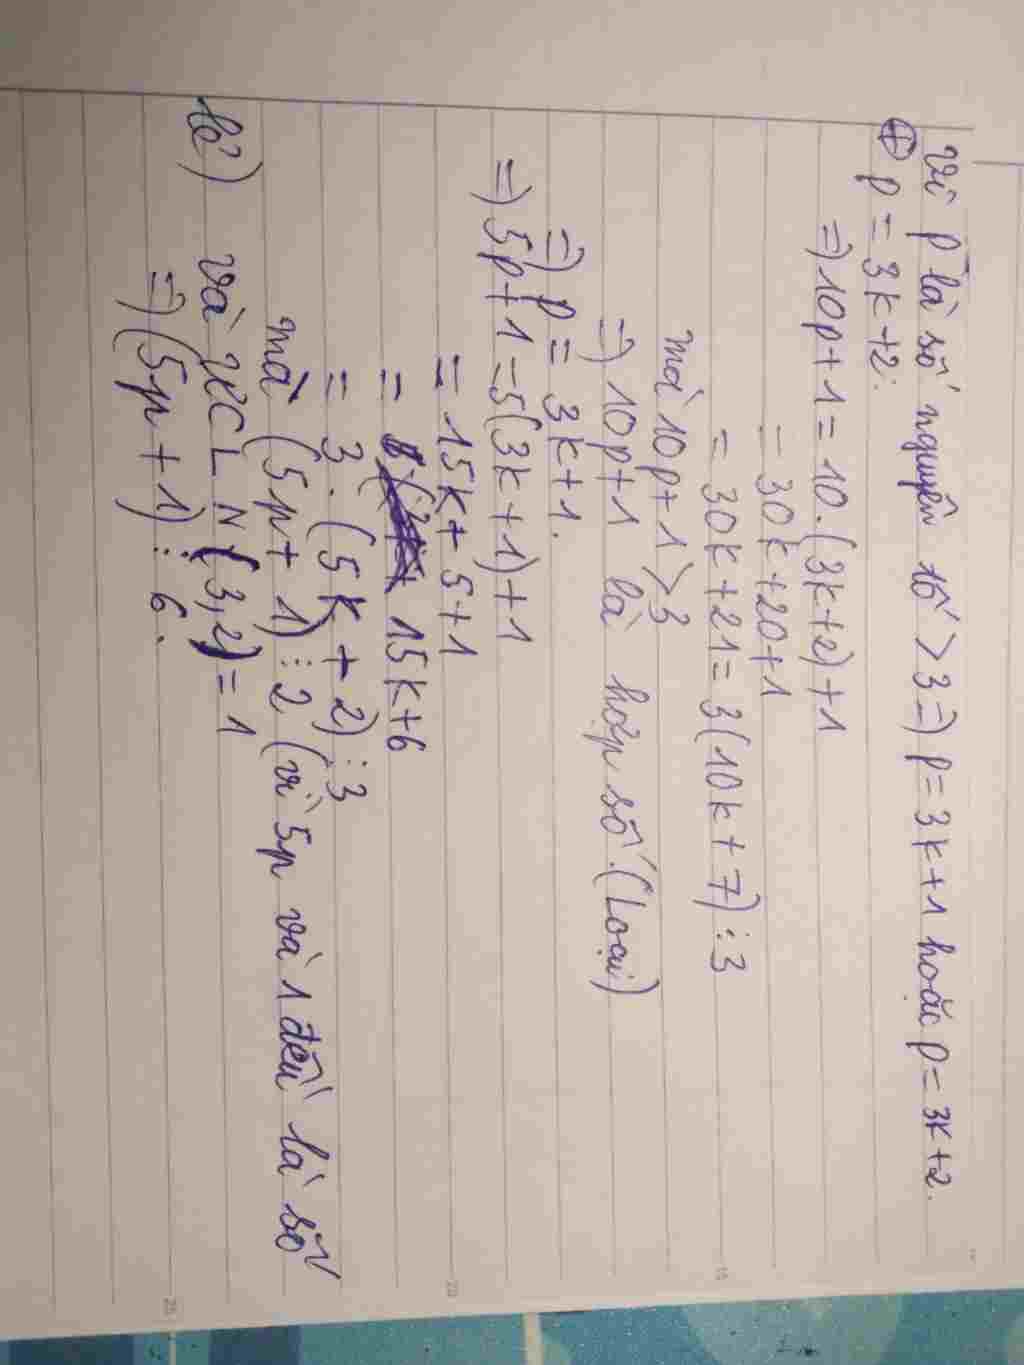 Vì p là số nguyên tố > 3 => p = 3k+1 hoặc p = 3k+2.
⊕ p = 3k+2.
=> 10p+1 = 10.(3k+2)+1
= 30k+20+1
= 30k+21 = 3(10k+7) ⋮ 3
mà 10p+1 > 3
=> 10p+1 là hợp số. (Loại)
=> p = 3k+1.
=> 5p+1 = 5(3k+1)+1
= 15k+5+1
= 15k+6
= 3.(5k+2) ⋮ 3
mà (5p+1) ⋮ 2 (vì 5p và 1 đều là số
lẻ) và ƯCLN (3,2) = 1
=> (5p+1) ⋮ 6.
15
20
25